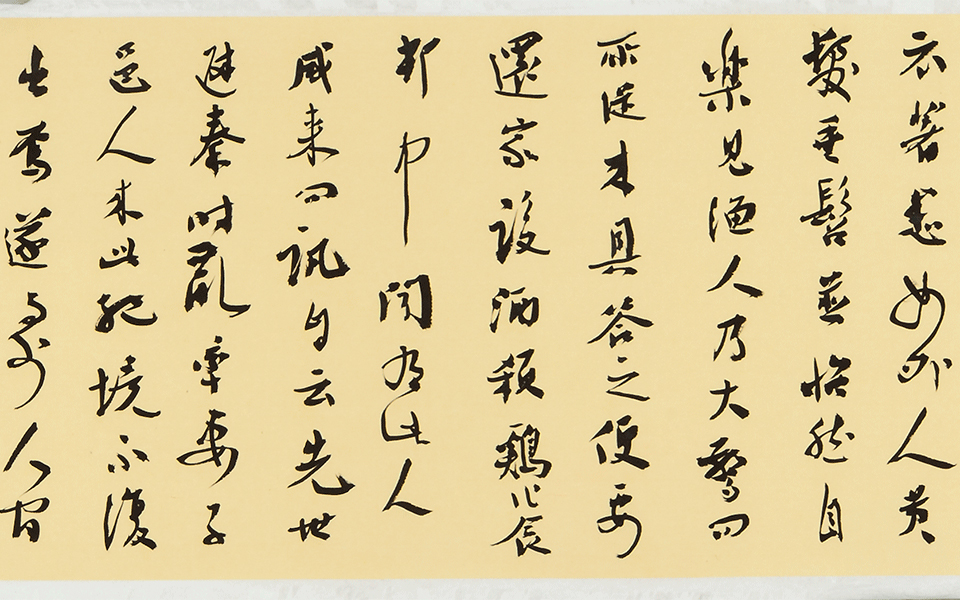 衣著悉如外人黄
髮垂髫並怡然自
樂見漁人乃大驚問
所從来具答之便要
還家設酒殺鷄作食
邨中聞有此人
咸来問訊自云先世
避秦時亂率妻子
邑人来此絶境不復
出焉遂与外人間